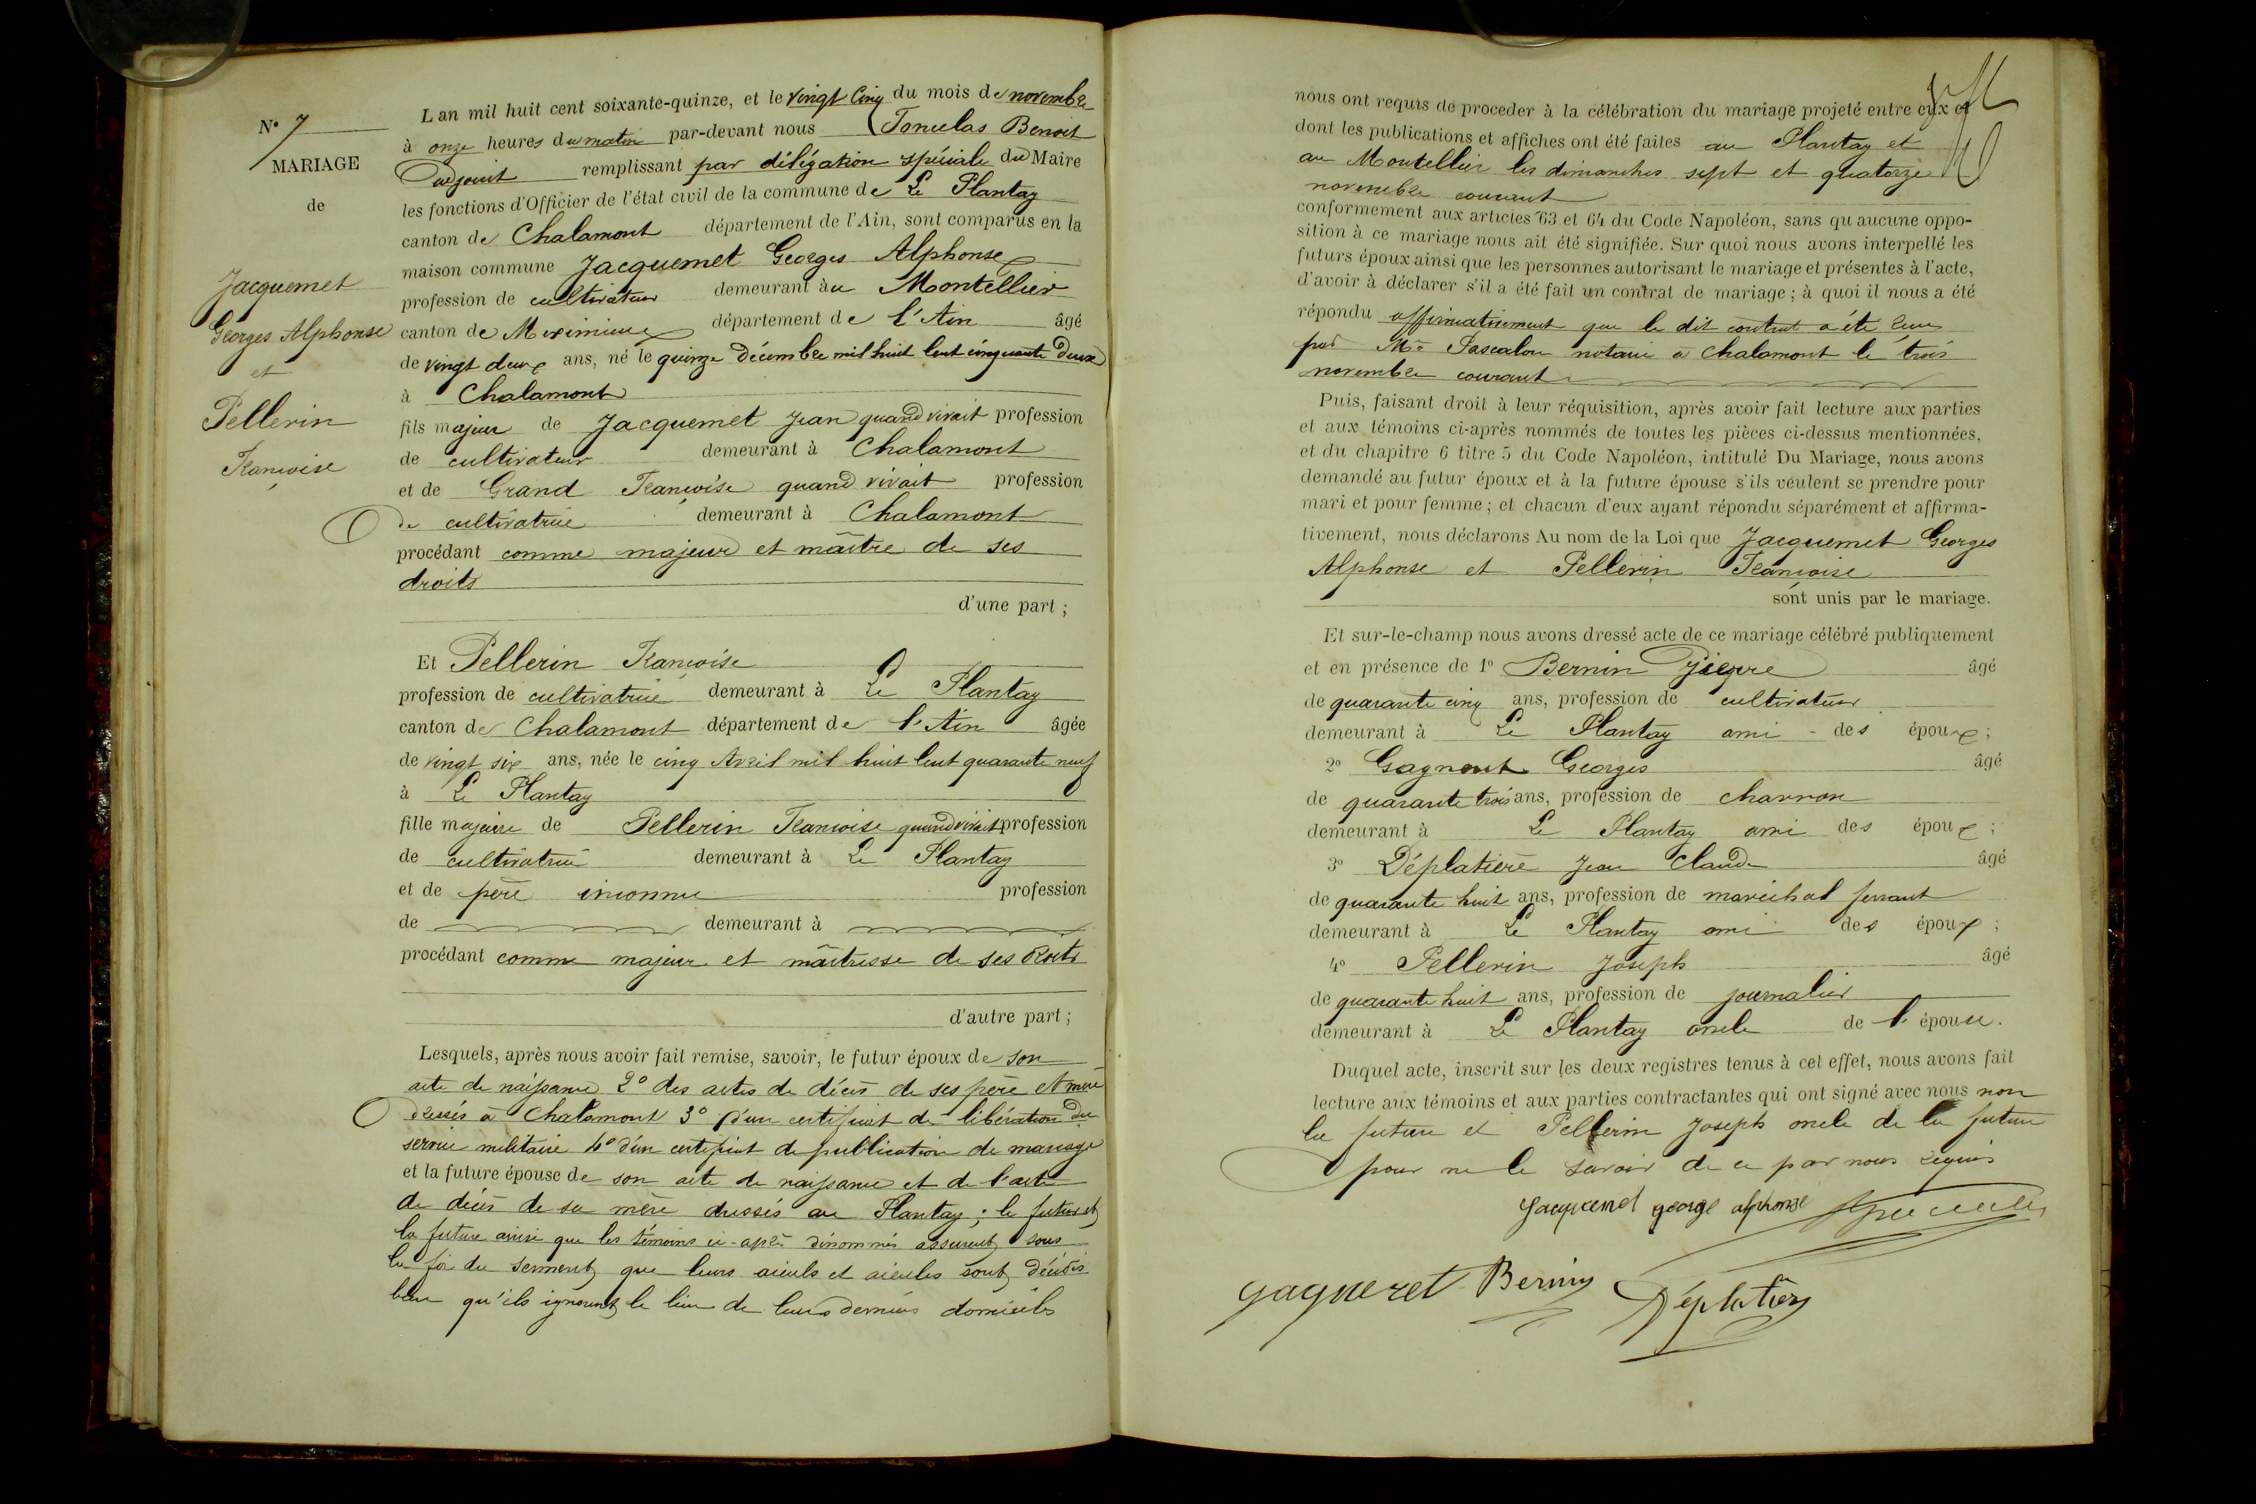 N° 7
MARIAGE
de
Jacquemet
Georges Alphonse
et
Pellerin
Françoise
L'an mil huit cent soixante-quinze, et le vingt cinq du mois de novembre
à onze heures du matin par-devant nous Benoit
adjoint remplissant par délégation spéciale du Maire
les fonctions d'Officier de l'état civil de la commune de Le Plantay
canton de Chalamont département de l'Ain, sont comparus en la
maison commune Jacquemet Georges Alphonse
profession de cultivateur demeurant au Montellier
canton de Meximieux département de l'Ain âgé
de vingt deux ans, né le quinze décembre mil huit cent cinquante deux
à Chalamont
fils majeur de Jacquemet Jean quand vivait profession
de cultivateur demeurant à Chalamont
et de Grand Françoise quand vivait profession
de cultivatrice demeurant à Chalamont
procédant comme majeur et maître de ses
droits
d'une part ;
Et Pellerin Françoise
profession de cultivatrice demeurant à Le Plantay
canton de Chalamont département de l'Ain âgée
de vingt six ans, née le cinq Avril mil huit cent quarante neuf
à Le Plantay
fille majeure de Pellerin Françoise quand vivait profession
de cultivatrice demeurant à Le Plantay
et de père inconnu profession
de demeurant à
procédant comme majeure et maîtresse de ses droits
d'autre part ;
Lesquels, après nous avoir fait remise, savoir, le futur époux de son
acte de naissance 2° des actes de décès de ses père et mère
dressés à Chalamont 3° d'un certificat de libération du
service militaire 4° d'un certificat de publication de mariage
et la future épouse de son acte de naissance et de l'acte
de décès de sa mère dressés au Plantay ; le futur et
la future ainsi que les témoins ci-après dénommés assurent sous
la foi du serment que leurs aieuls et aieules sont décédés
qu'ils ignorent le lieu de leurs derniers domiciles
nous ont requis de procéder à la célébration du mariage projeté entre eux et
dont les publications et affiches ont été faites au Plantay et
au Montellier les dimanches sept et quatorze
novembre courant
conformément aux articles 63 et 64 du Code Napoléon, sans qu'aucune oppo-
sition à ce mariage nous ait été signifiée. Sur quoi nous avons interpellé les
futurs époux ainsi que les personnes autorisant le mariage et présentes à l'acte,
d'avoir à déclarer s'il a été fait un contrat de mariage ; à quoi il nous a été
répondu affirmativement que le dit contrat a été reçu
par Me Pascalon notaire à Chalamont le trois
novembre courant
Puis, faisant droit à leur réquisition, après avoir fait lecture aux parties
et aux témoins ci-après nommés de toutes les pièces ci-dessus mentionnées,
et du chapitre 6 titre 5 du Code Napoléon, intitulé Du Mariage, nous avons
demandé au futur époux et à la future épouse s'ils veulent se prendre pour
mari et pour femme ; et chacun d'eux ayant répondu séparément et affirma-
tivement, nous déclarons Au nom de la Loi que Jacquemet Georges
Alphonse et Pellerin Françoise
sont unis par le mariage.
Et sur-le-champ nous avons dressé acte de ce mariage célébré publiquement
et en présence de 1° Bernin Pierre âgé
de quarante cinq ans, profession de cultivateur
demeurant à Le Plantay ami des époux ;
2° Gagneret Georges âgé
de quarante trois ans, profession de charron
demeurant à Le Plantay ami des époux ;
3° Déplatière Jean Claude âgé
de quarante huit ans, profession de maréchal ferrant
demeurant à Le Plantay ami des époux ;
4° Pellerin Joseph âgé
de quarante huit ans, profession de journalier
demeurant à Le Plantay oncle de l'épouse.
Duquel acte, inscrit sur les deux registres tenus à cet effet, nous avons fait
lecture aux témoins et aux parties contractantes qui ont signé avec nous non
la future et Pellerin Joseph oncle de la future
pour ne le savoir de ce par nous requis
Jacquemet george alphonse
gagneret Bernin Déplatière